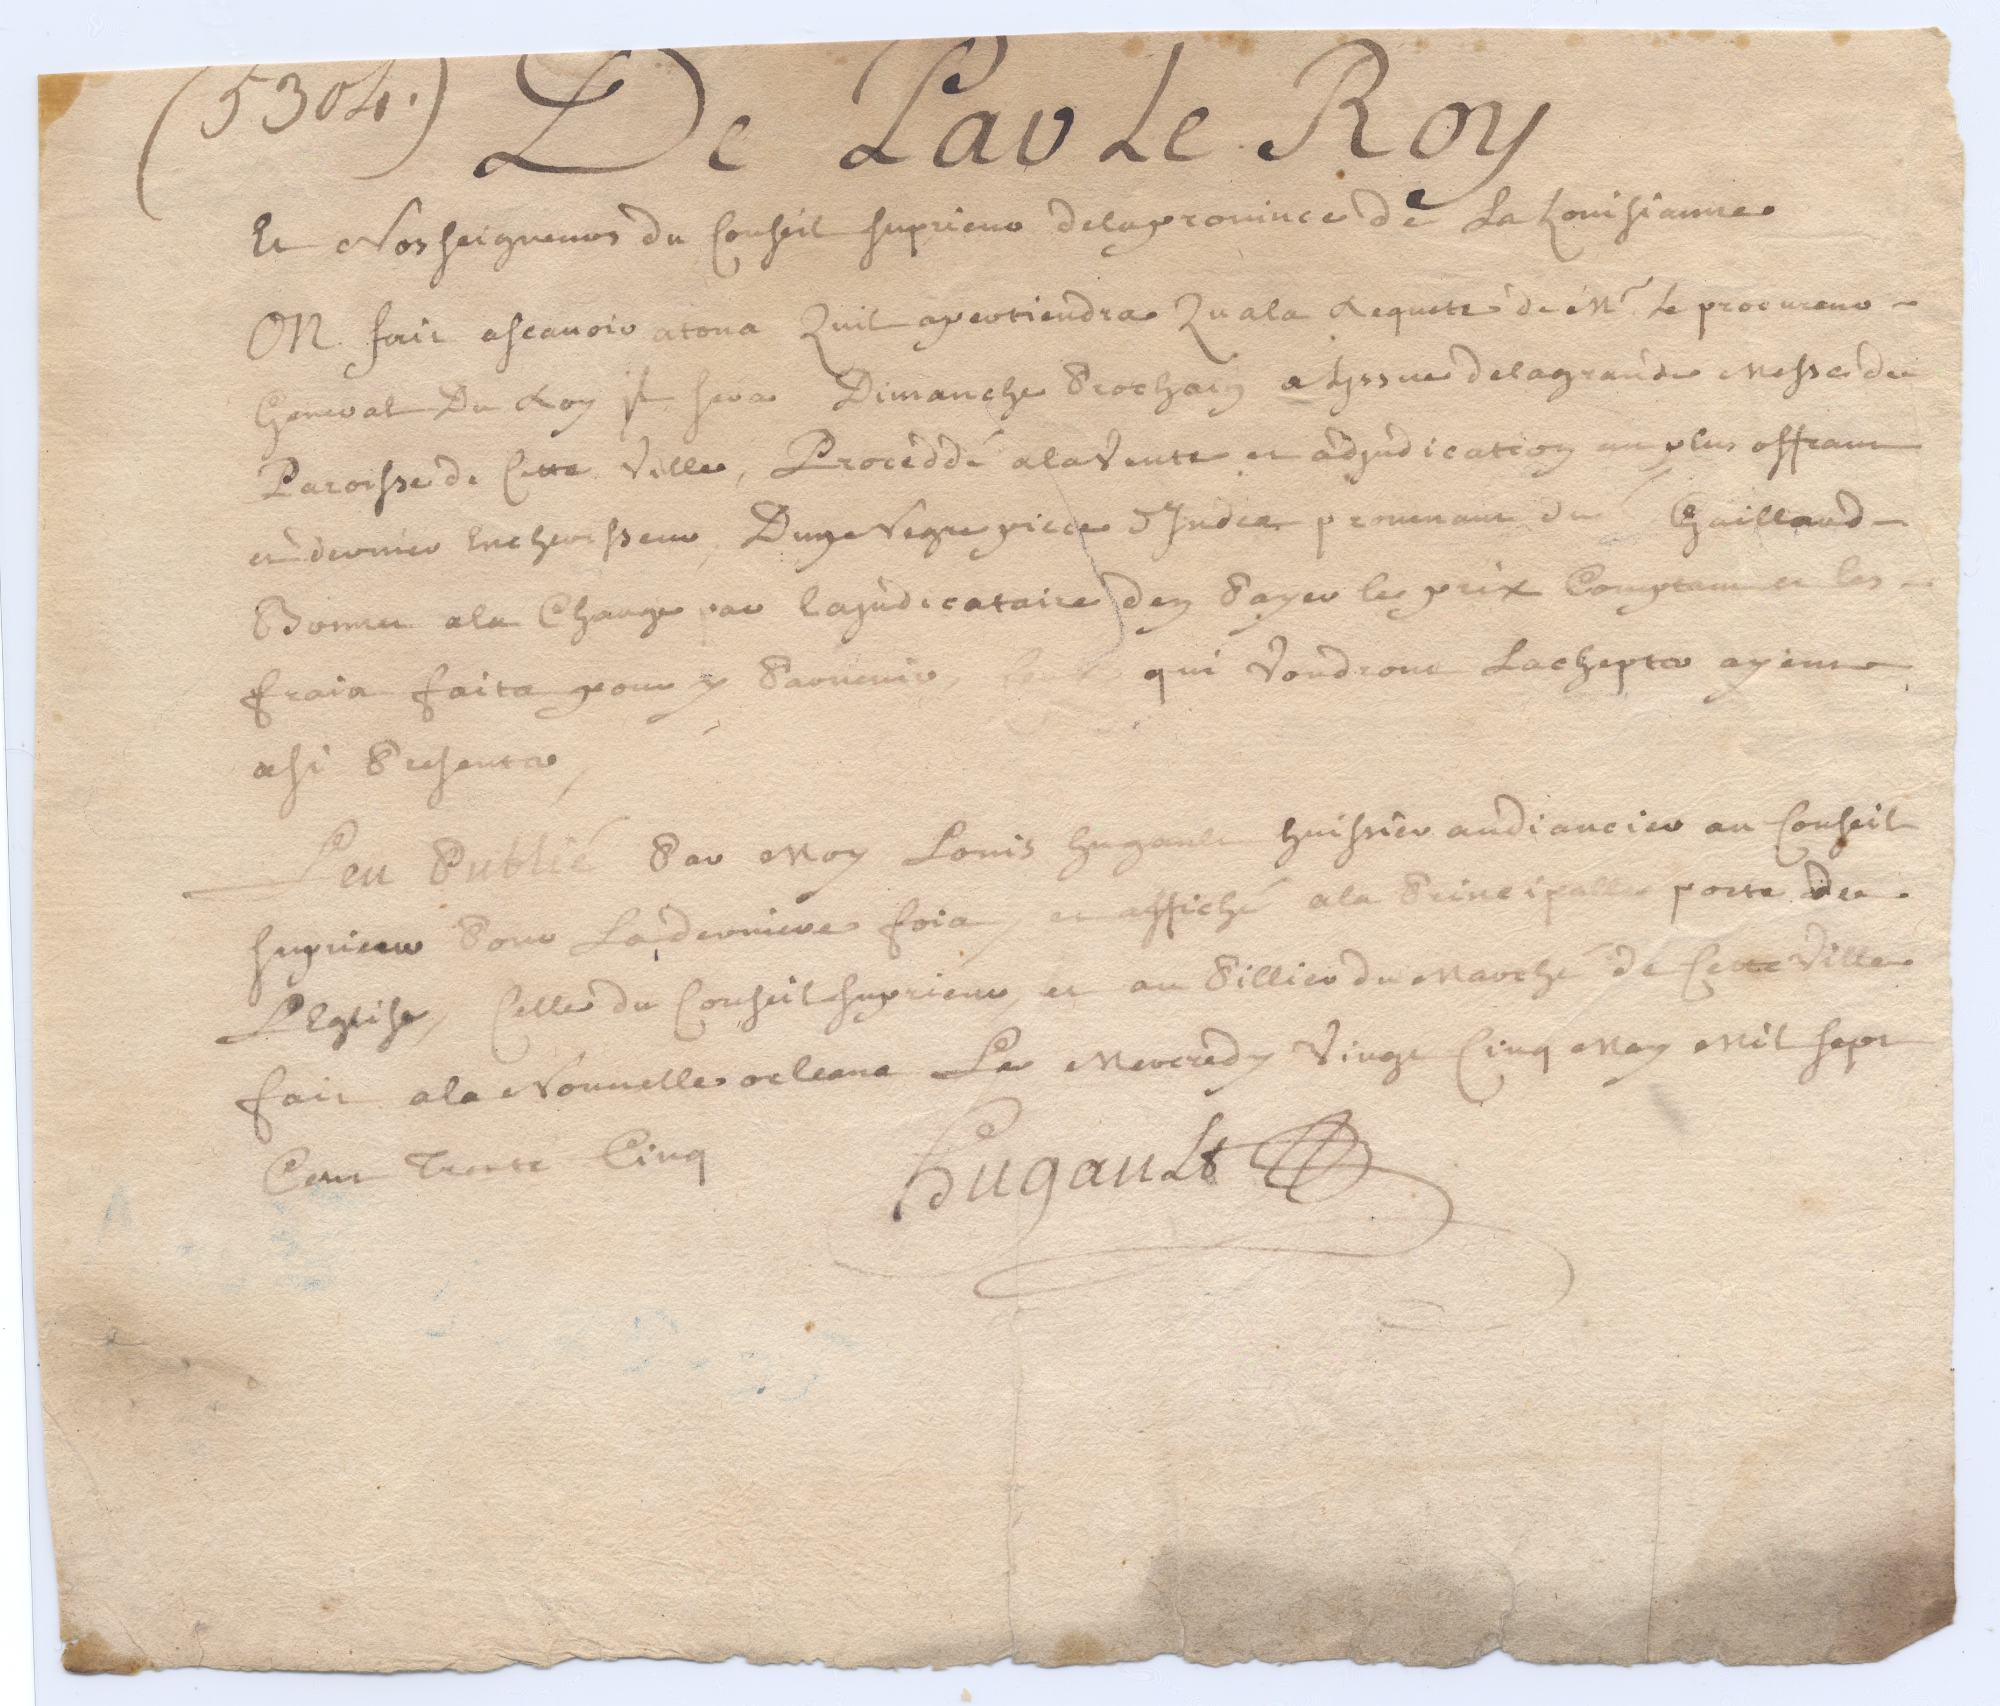 (5304.) De Par Le Roy
Et Nosseigneurs du Conseil superieur delaprovince de La Louisianne
ON fait ascavoir atous Quil apertiendra Quala Requete de Mr. Le procureur
General Du Roy jl sera Dimanche Prochain a Lyssue delagrande Messe de
Paroisse de Cette Ville, Procèddé alaVente et adjudication au plus offrant
et dernier Encherisseur, Dune Negre piece DIndes provenant du Gaillard
Bonner ala Charge par lajudicataire den Payer le prix Comptant et les
frais faits pour y Parvenir, qui Voudront Lachepter ayent
asi Presenter,
Leu Publié Par Moy Louis hugault huissier audiancier au Conseil
superieur Pour La derniere fois, et affiché ala Principalle porte de
LEglise, Celle du Conseil superieur, et au Pillier du Marché de Cette Ville
fait ala Nouvelle orleans Le Mercredy Vingt Cinq May Mil sept
Cent Trente Cinq hugault